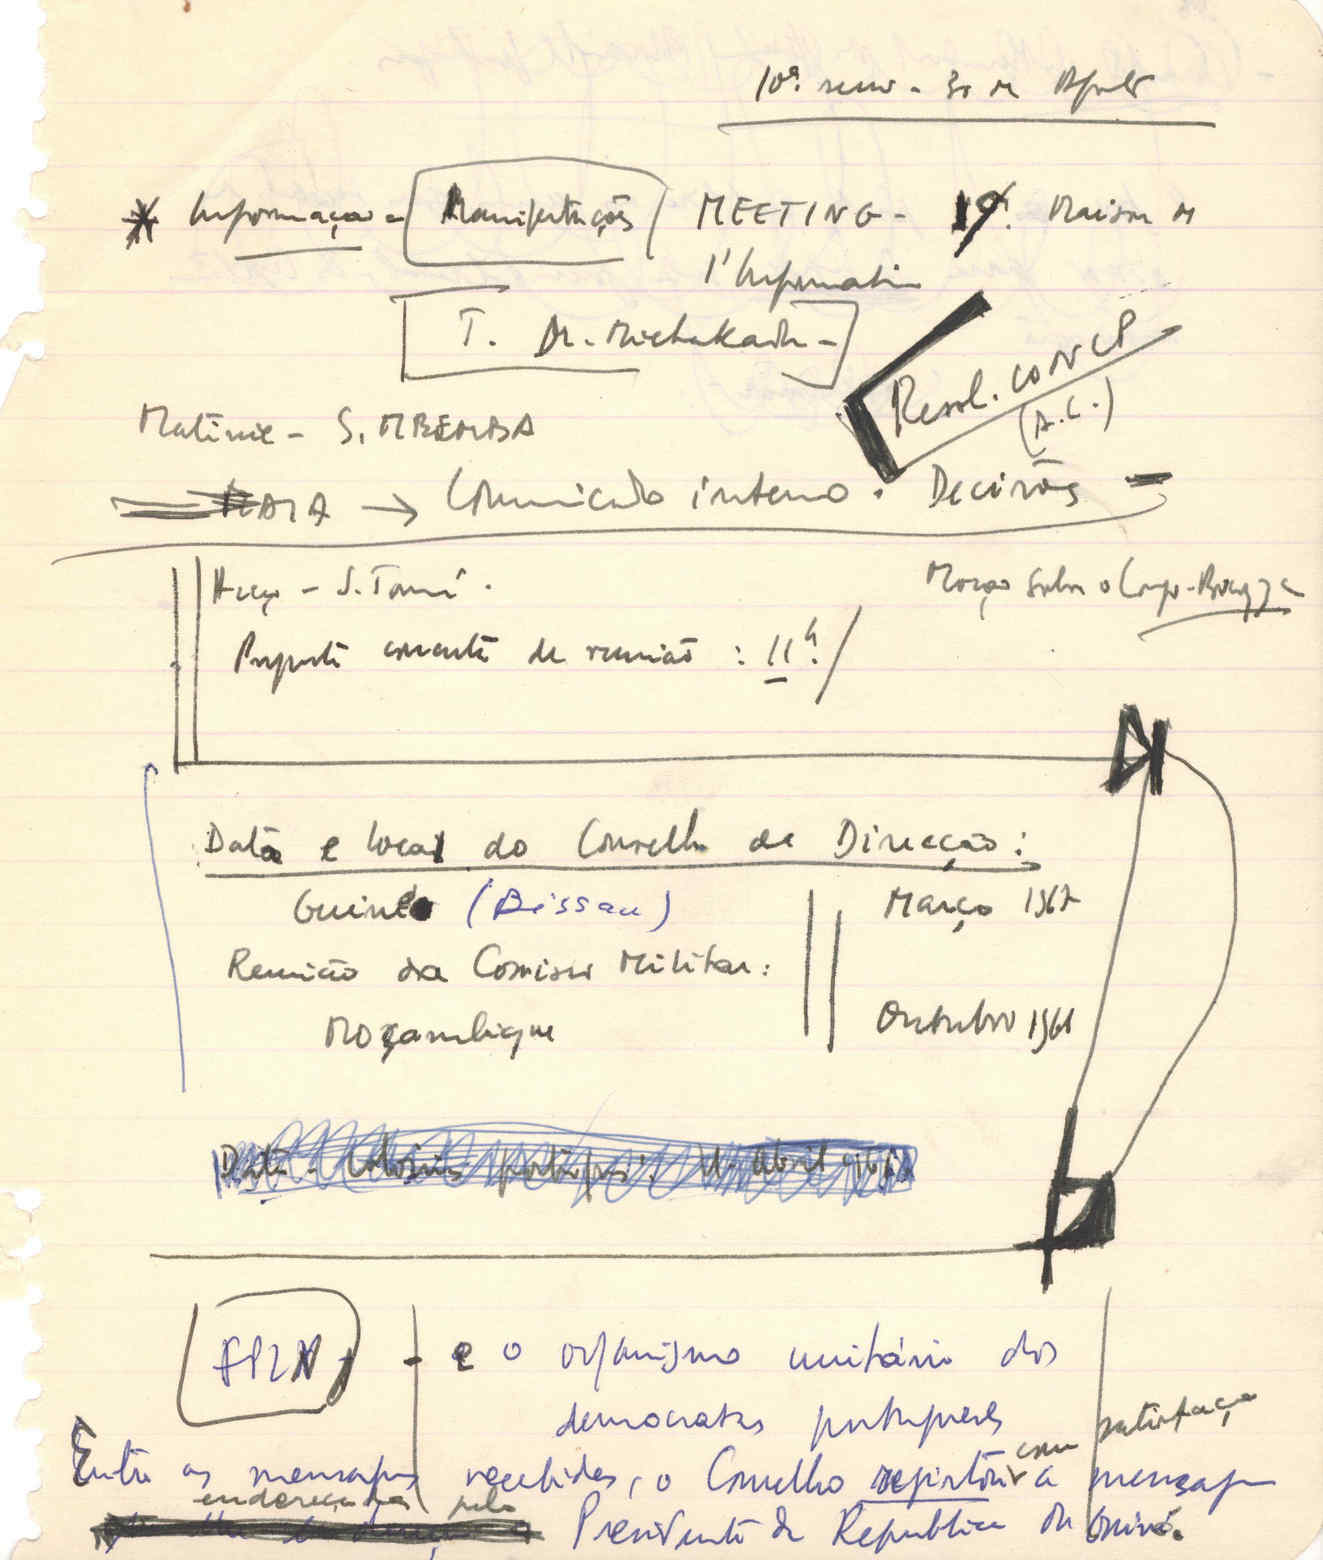 10ª
* Informação - Manifestações / MEETING - Maison de
l'Information
T. Dr.
Resol. CONCP
(A.C.)
Matinée - S. MBEMBA
MAIA → Comunicado interno. Decisões -
S. Tomé.
Moção sobre o Congo-Brazza
Proposta de reunião : 11h. /
Data e local do Conselho de Direcção:
Guiné (Bissau) Março 1967
Reunião da Comissão Militar:
Moçambique Outubro 1966
FPLN, - e o organismo unitário dos
democratas portugueses
com satisfação
Entre as mensagens recebidas, o Conselho registou a mensagem
endereçada pelo
Presidente da República da Guiné.